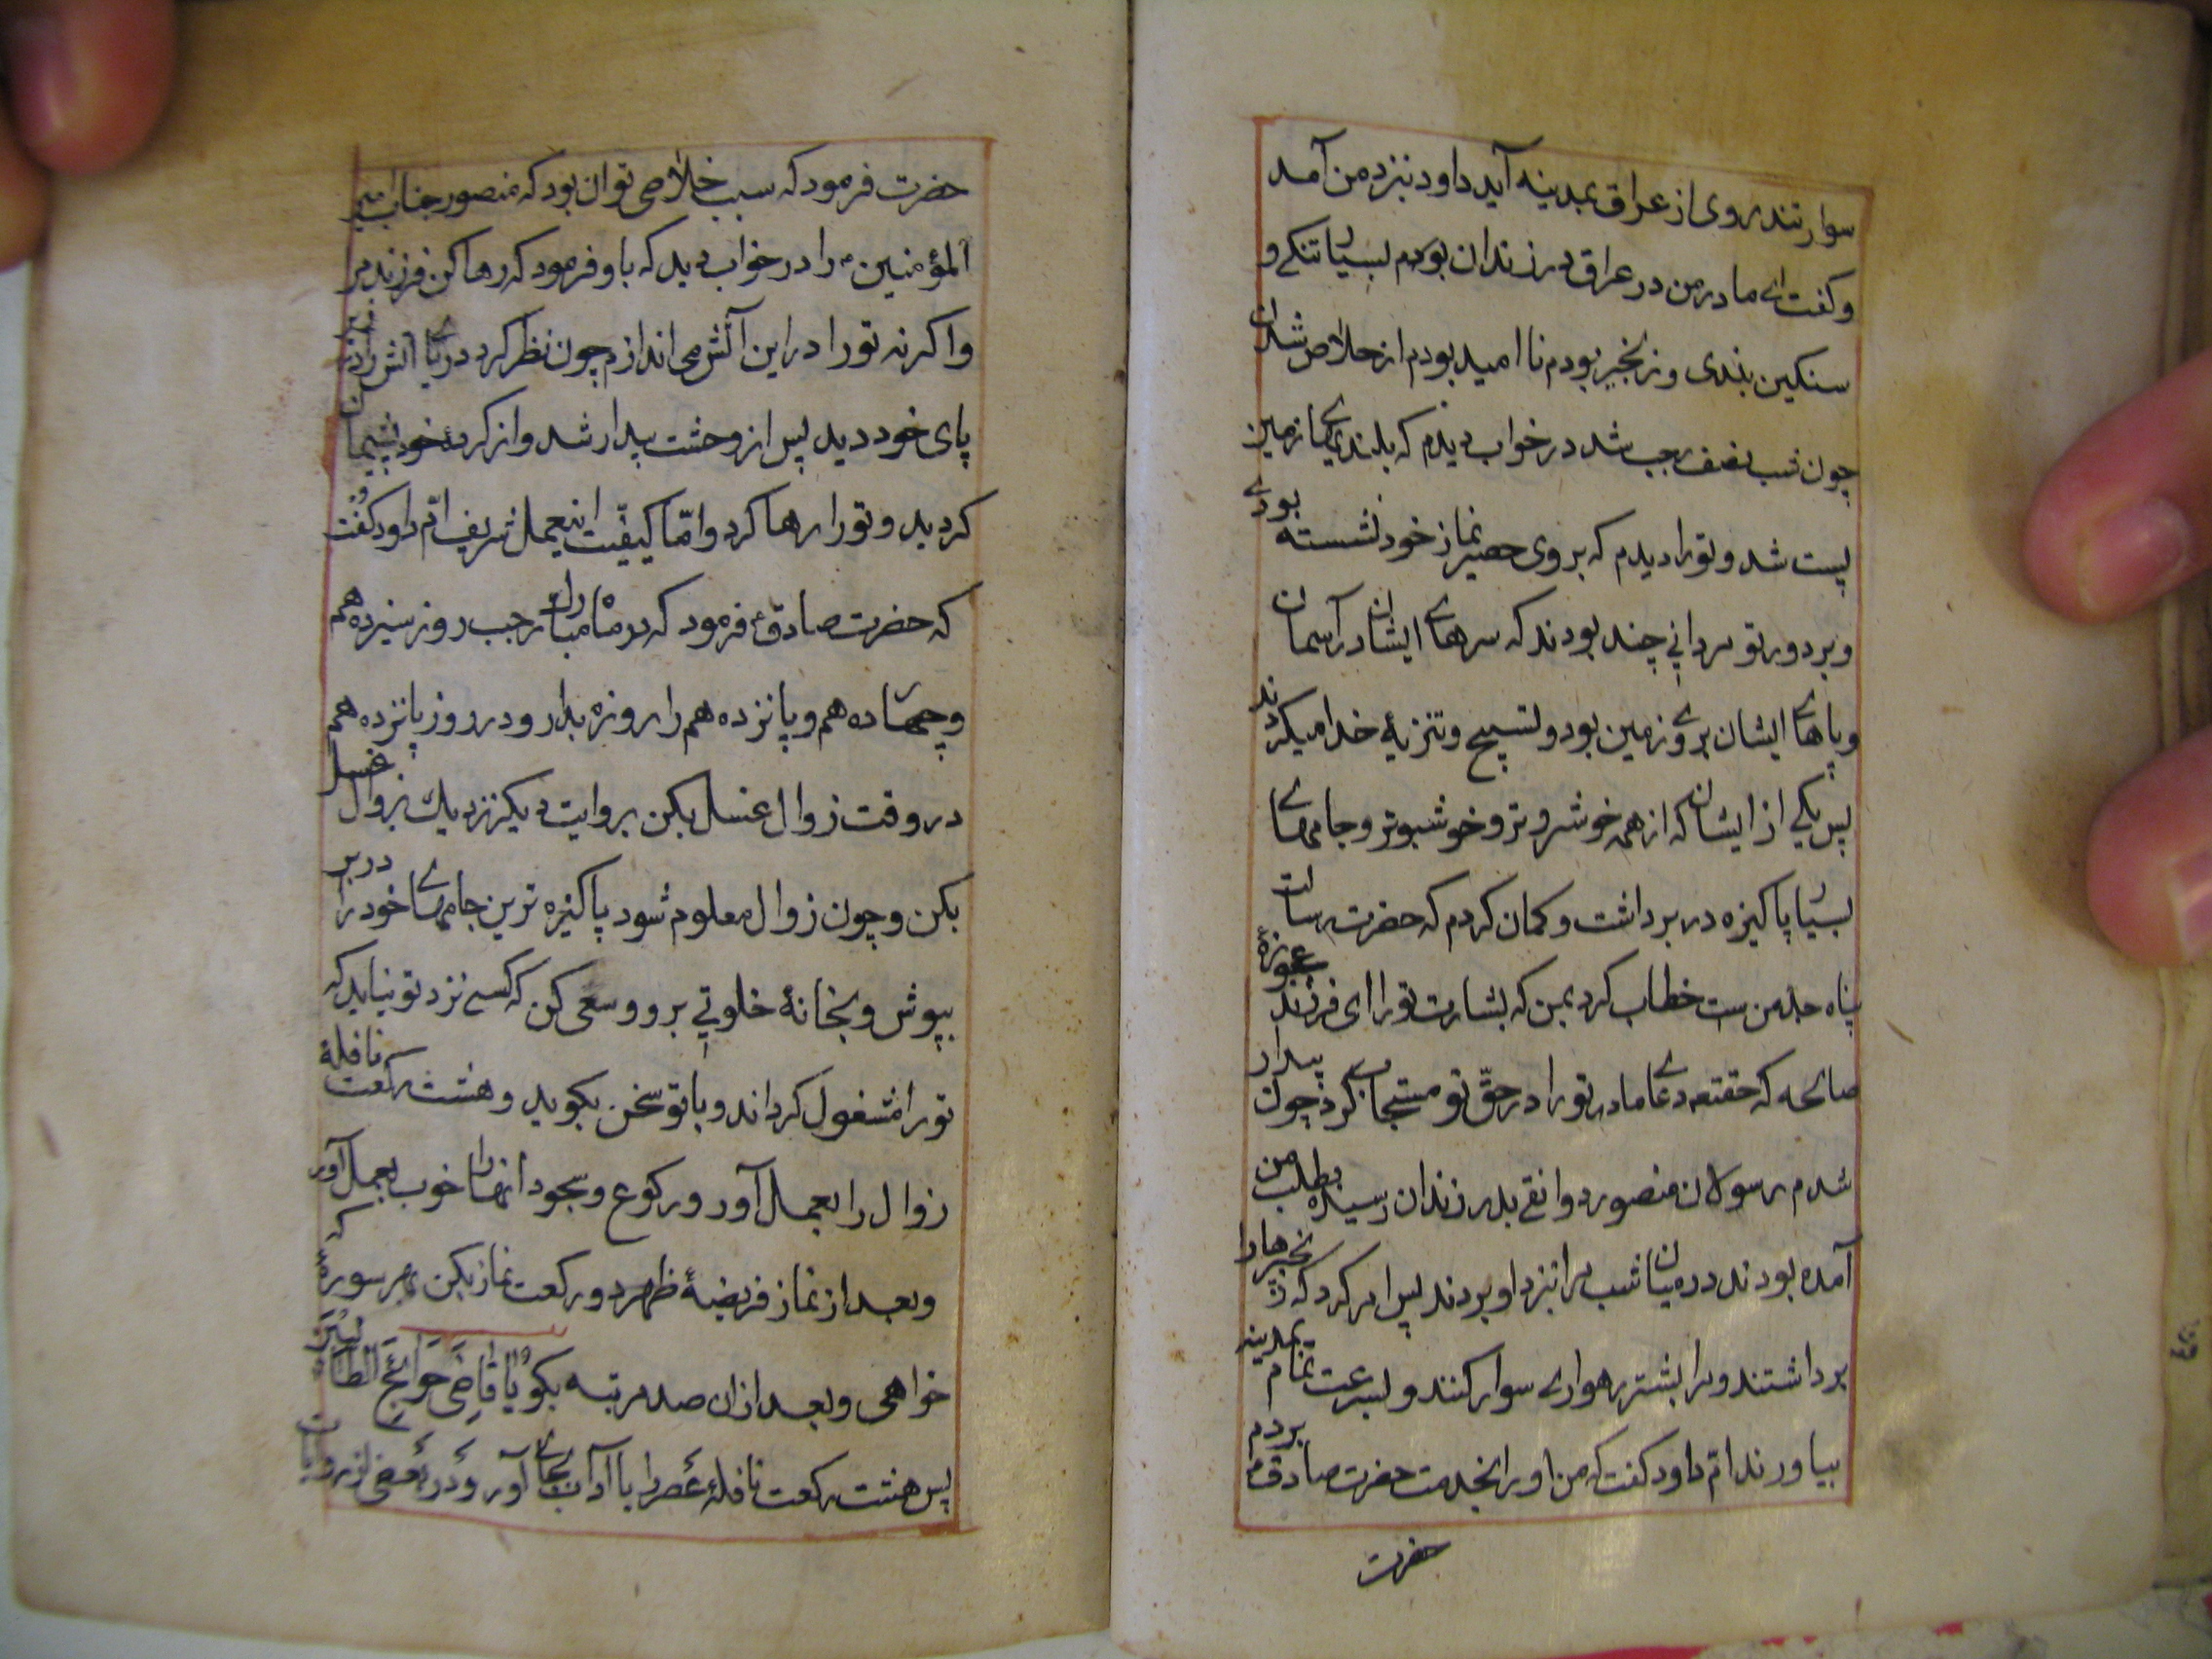 سوار تندروی از عراق بمدینه آید داود بنزد من آمد
و کفت ای مادر من در عراق در زندان بودم بسیار تنکی و
سنکین بندی و زنجیر بودم نا امید بودم از خلاص شدن
چون شب نصف رجب شد در خواب دیدم که بلندیهای زمین
پست شد و تو را دیدم که بر روی حصیر نماز خود نشسته بودی
و بر دور تو مردانی چند بودند که سرهای ایشان در آسمان
و پاهای ایشان بر روی زمین بود و تسبیح و تنزیه خدا میکردند
پس یکی از ایشان که از همه خوشرو تر و خوشبوتر و جامهای
بسیار پاکیزه در بر داشت و کمان کردم که حضرت رسالت
پناه جد من ست خطاب کرد بمن که بشارت تو را ای فرزند عجوزهٔ
صالحه که حقتعه دعای مادر تو را در حقّ تو مستجاب کرد چون بیدار
شدم رسولان منصور دوانقی بدر زندان رسیده بطلب من
آمده بودند در میان شب مرا بنزد او بردند پس امر کرد که زنجیرها را
برداشتند و مرا بشتر رهواری سوار کنند و بسرعت تمام بمدینه
بیاورند امّ داود کفت که من او را بخدمت حضرت صادق ع بردم
حضرت
حضرت فرمود که سبب خلاصی تو ان بود که منصور جناب امیر
المؤمنین ع را در خواب دید که باو فرمود که رها کن فرزند مرا
و اکر نه تو را در این آتش می اندازم چون نظر کرد دریای اتش را در زیر
پای خود دید پس از وحشت بیدار شد و از کرده خود پشیمان
کردید و تو را رها کرد و امّا کیفیّت اینعمل شریف امّ داود کفت
که حضرت صادق ع فرمود که در ماه مبارک رجب روز سیزده هم
و چهارده هم و پانزده هم را روزه بدار و در روز پانزده هم
در وقت زوال غسل بکن بروایت دیکر نزدیك بزوال غسل
بکن و چون زوال معلوم شود پاکیزه ترین جامهای خود را در بر
بپوش و بخانهٔ خلوتی برو و سعی کن که کسی نزد تو نیاید که
تو را مشغول کرداند و با تو سخن بکوید و هشت رکعت نافلهٔ
زوال را بعمل آور و رکوع و سجود انها را خوب بعمل آور
و بعد از نماز فریضهٔ ظهر دو رکعت نماز بکن بهر سورهٔ که
خواهی و بعد ازان صد مرتبه بکو یا قَاضِیَ حَوَائِجِ الطَّالِبِینَ
پس هشت رکعت نافلهٔ عصر را با آداب بجای آور و در بعضی از روایات